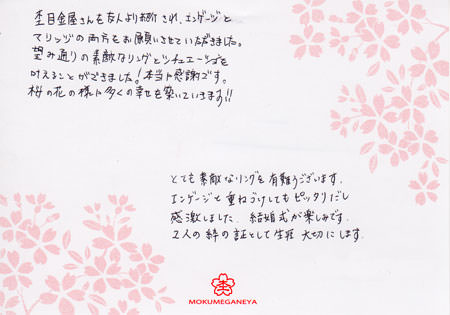 杢目金屋さんを友人よりお聞きされ、エンゲージと
マリッジの両方をお願いさせていただきました。
望み通りの素敵なリングとシチュエーションを
叶えることができました!本当に感謝です。
桜の花の様に多くの幸せを築いていきます!!
とても素敵なリングを有難うございます。
エンゲージと重ねづけしてもピッタリだし
感激しました。結婚式が楽しみです。
2人の絆の証として生涯大切にします。
MOKUMEGANEYA